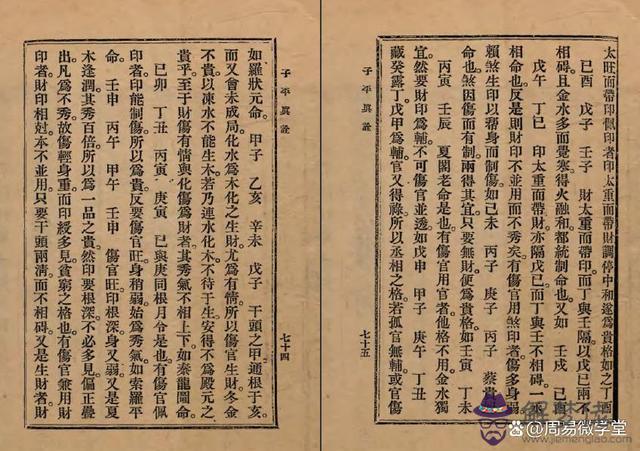 子平眞詮
七十四
如羅狀元命。甲子　乙亥　辛未　戊子　干頭之甲通根于亥。
而又會未成局化水爲木化之生財尤爲有情所以傷官生財冬金
不貴以凍水不能生木若乃連水化木不待于生安得不爲殿元之
貴乎至于財傷有情與化傷爲財者其秀氣不相上下如秦龍圖命。
己卯　丁丑　丙寅　庚寅　己與庚同根月令是也有傷官佩
印者印能制傷所以爲貴反要傷官旺身稍弱始爲秀氣如索羅平
命。壬申　丙午　甲午　壬申　傷官旺印根深身又弱又是夏
木逢潤其秀百倍所以爲一品之貴然印要根深不必多見偏正疊
出凡爲不秀故傷輕身重而印綬多見貧窮之格也有傷官兼用財
印者財印相尅本不並用只要干頭兩清而不相礙又是生財者財
子平眞詮
七十五
太旺而帶印佩印者印太重而帶財調停中和遂爲貴格如之丁酉
己酉　戊子　壬子　財太重而帶印而丁與壬隔以戊己兩不
相礙且金水多而覺寒得火融和都統制命也又如　壬戌　己酉
戊午　丁巳　印太重而帶財亦隔戊己而丁與壬不相礙一丞
相命也反是則財印不並用而不秀矣有傷官用煞印者傷多身弱
賴煞生印以幫身而制傷如己未　丙子　庚子　丙子　蔡貴
命也煞因傷而有制兩得其宜只要無財便爲貴格如壬寅　丁未
丙寅　壬辰　夏閣老命是也有傷官用官者他格不用金水獨
宜然要財印爲輔不可傷官並透如戊申　甲子　庚午　丁丑
藏癸露丁戊甲爲輔官又得祿所以丞相之格若孤官無輔或官傷
解梦佬
www.jiemenglao.com
@周易微学堂